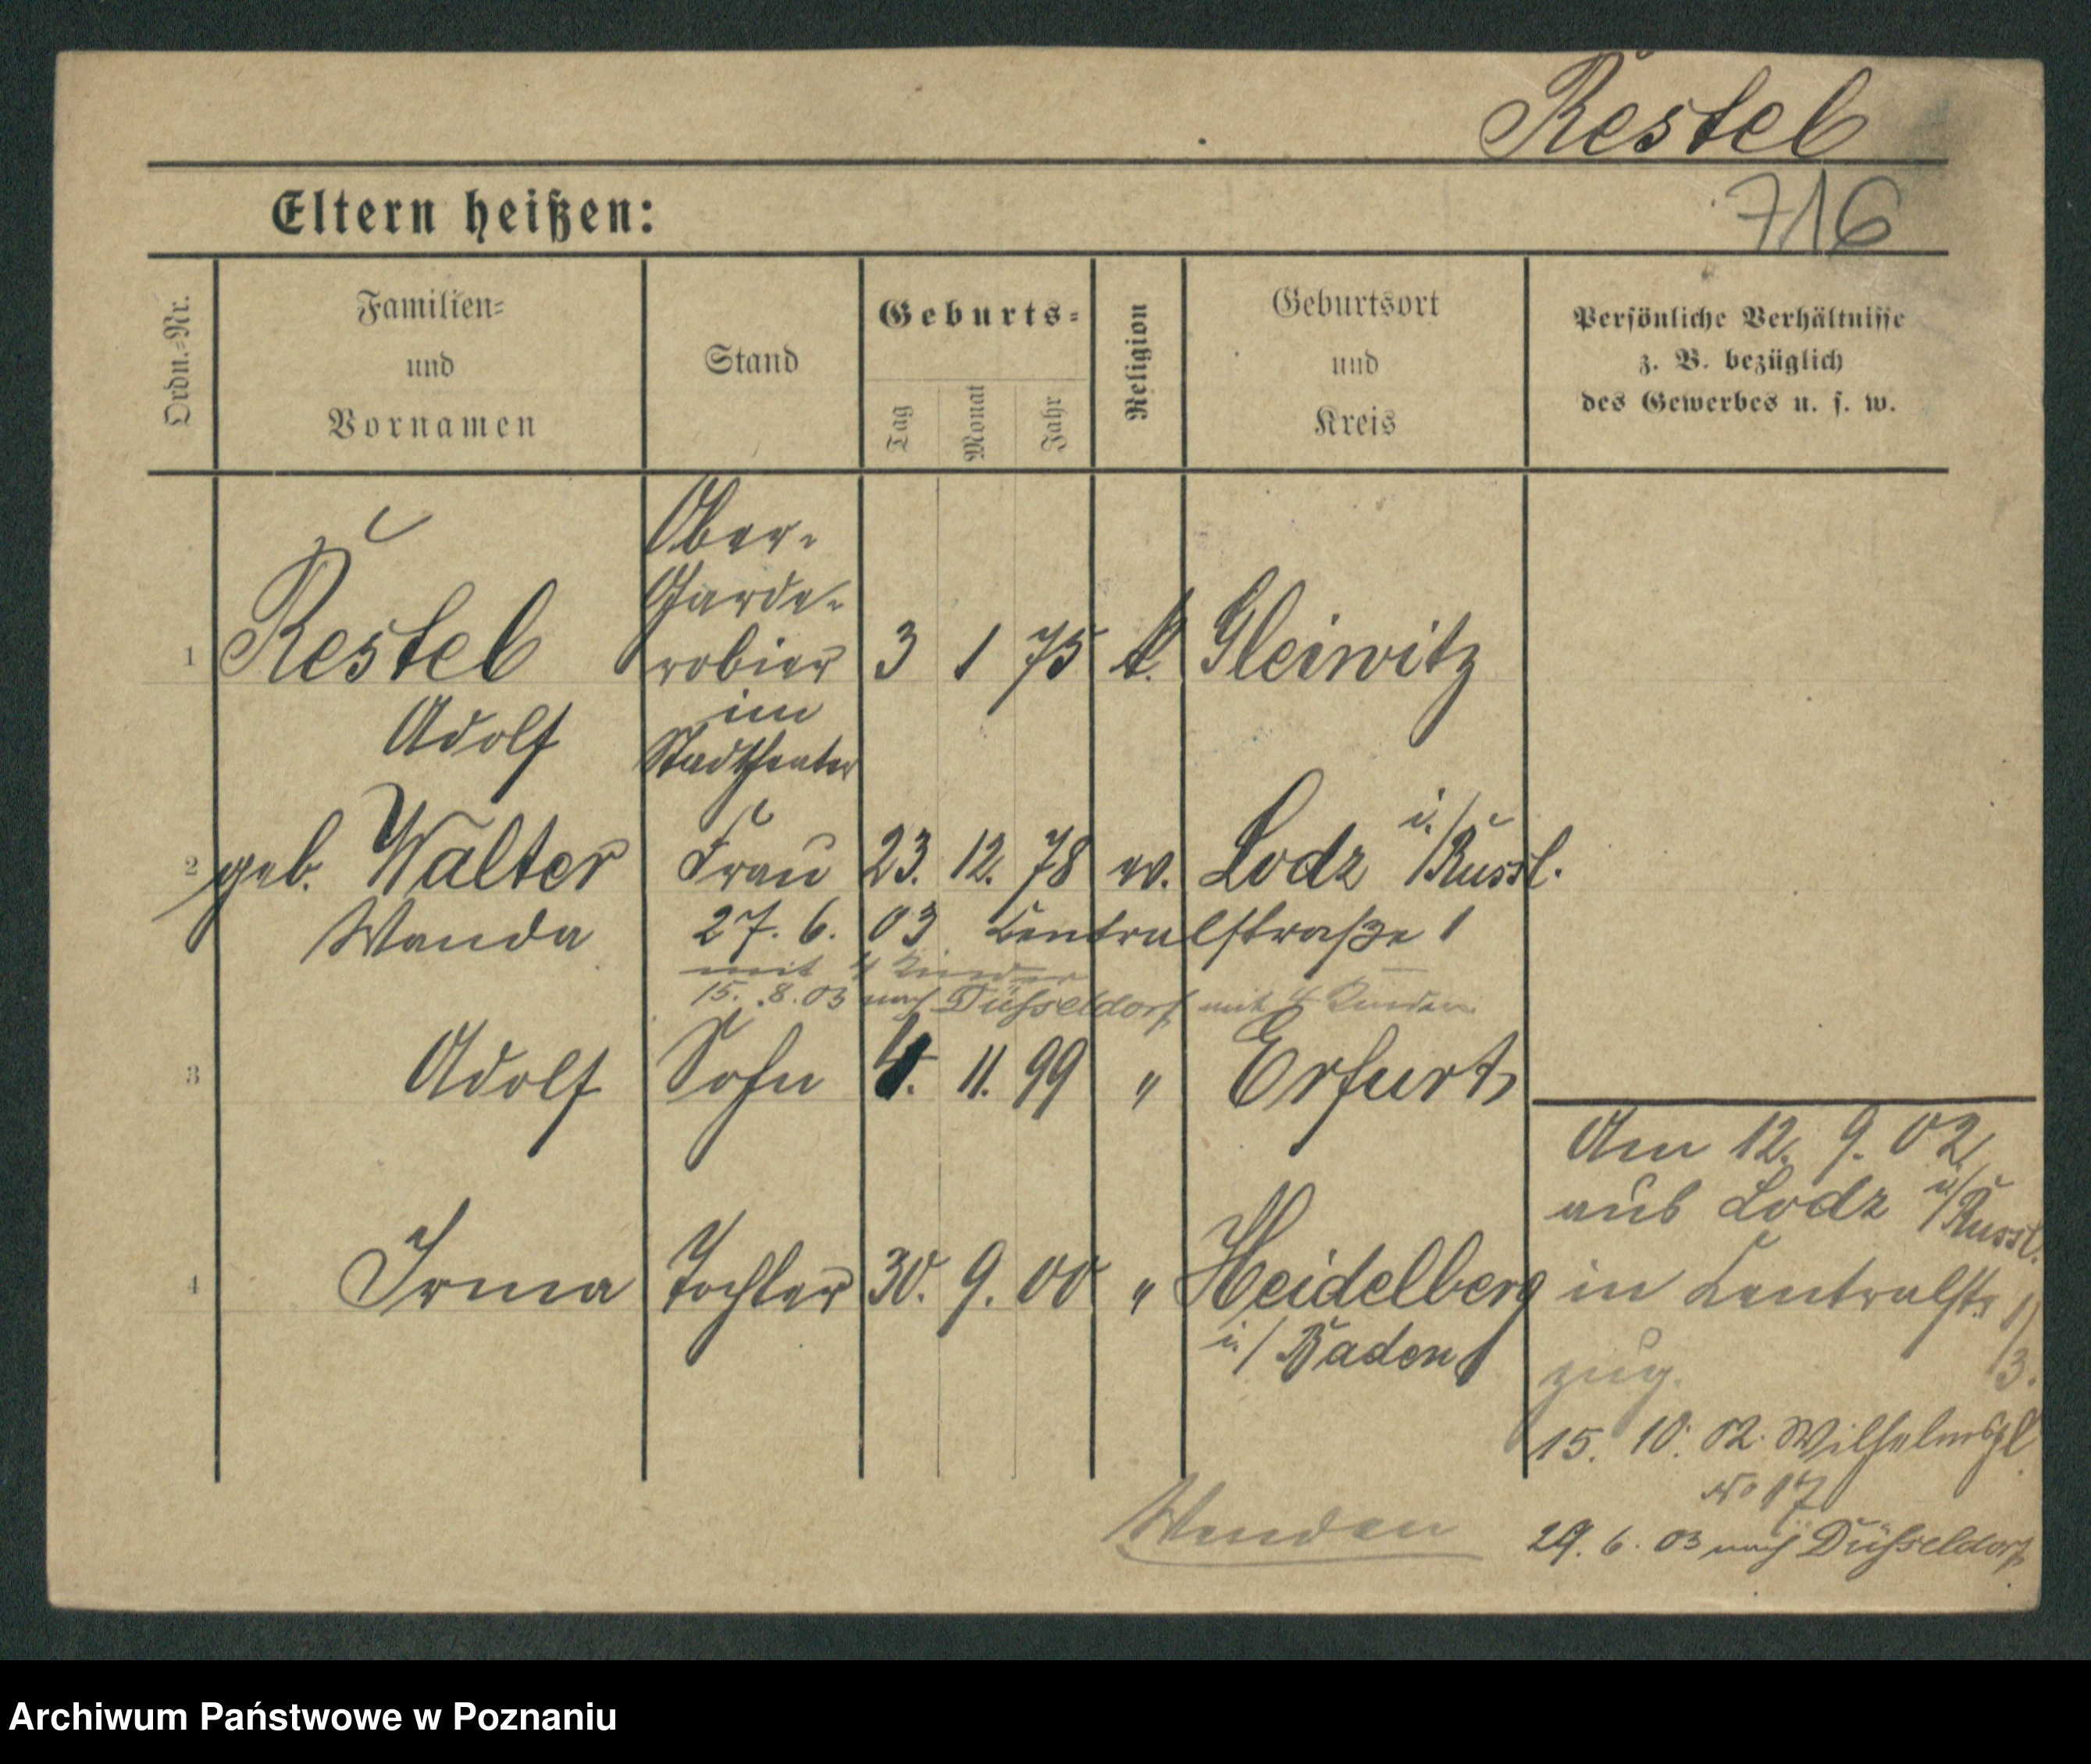 Restel
Eltern heißen:
716
Ordn.-Nr.
Familien-
und
Vornamen
Stand
Geburts-
Tag
Monat
Jahr
Religion
Geburtsort
und
Kreis
Persönliche Verhältnisse
z. B. bezüglich
des Gewerbes u. s. w.
Ober-
Garde-
1 Restel robier 3 1 75 k. Gleiwitz
im
Adolf Stadttheater
2 geb. Walter Frau 23. 12. 78 ev. Lodz i./Russl.
Wanda 27. 6. 03 Centralstraße 1
mit 4 Kinder
15. 8. 03 nach Düsseldorf mit 4 Kindern
3 Adolf Sohn 4. 11. 99 " Erfurt
4 Irma Tochter 30. 9. 00 " Heidelberg
i./Baden
Am 12. 9. 02
aus Lodz i/Russl.
in Centralstr. 1/3.
zug.
15. 10. 02. Wilhelmspl.
No 17
29. 6. 03 nach Düsseldorf
Wenden
Archiwum Państwowe w Poznaniu